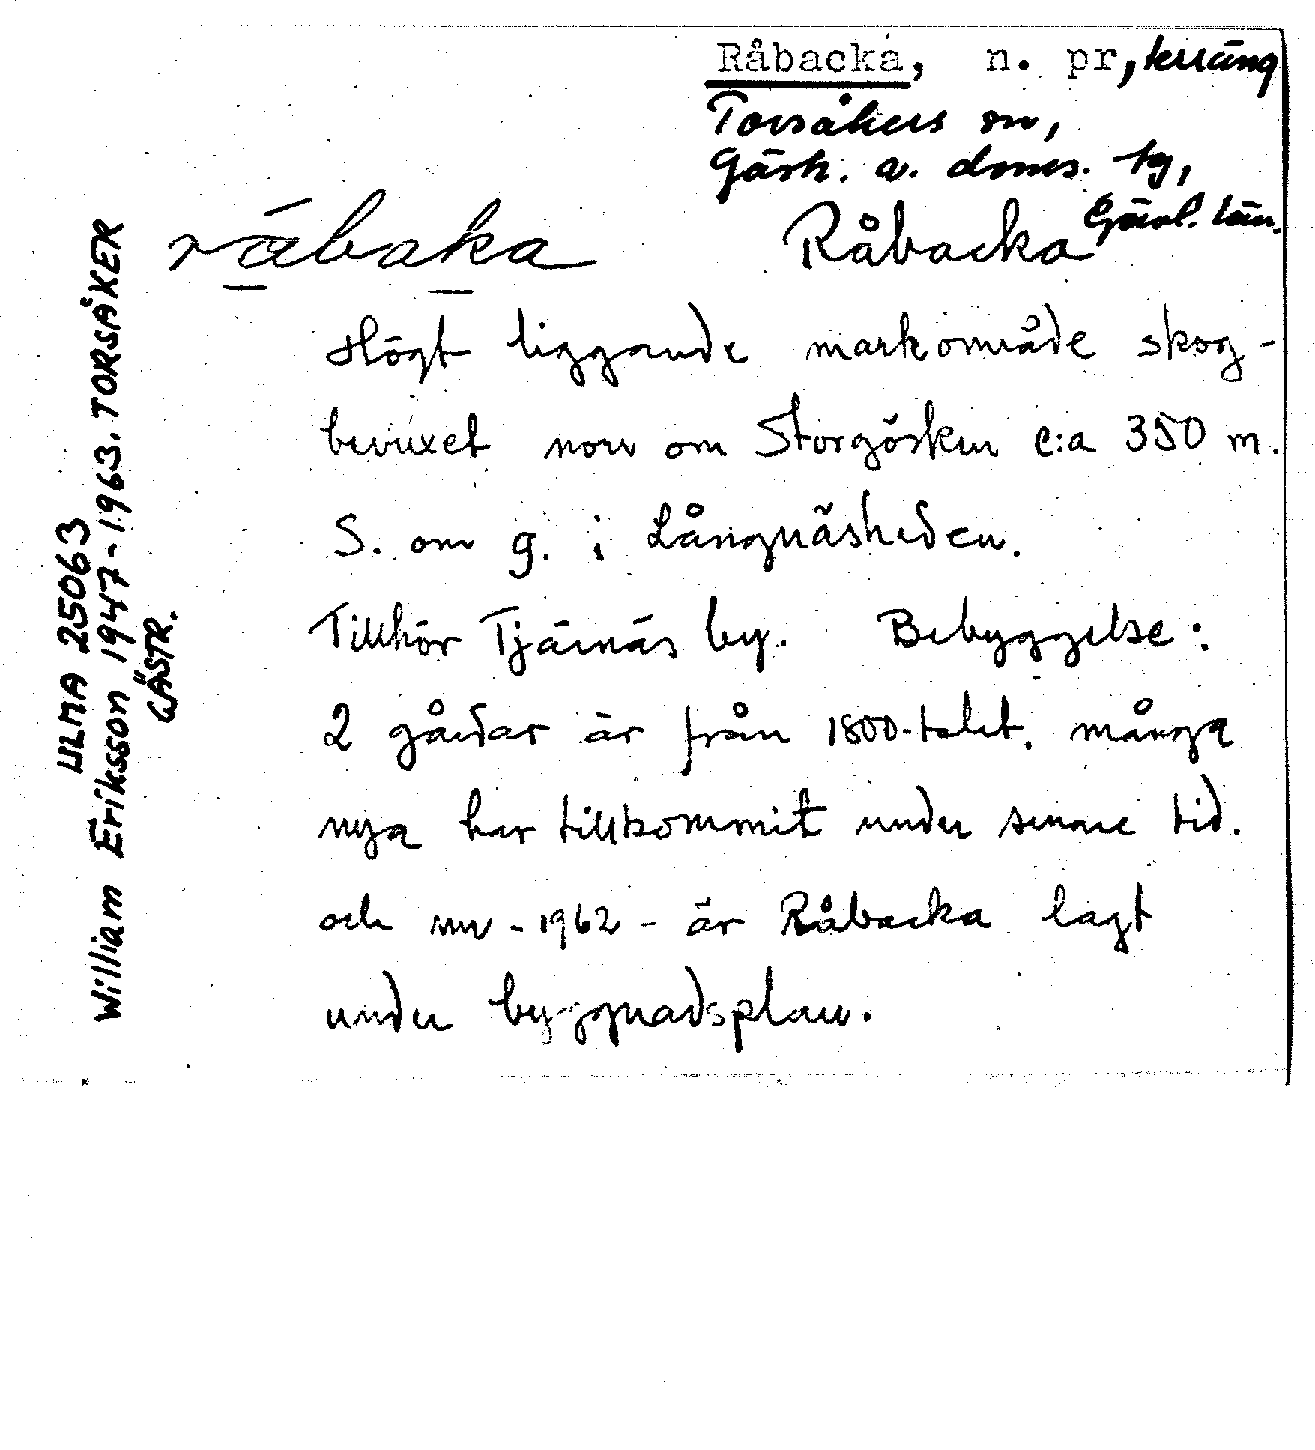 Råbacka, n. pr, terräng
Torsåkers sn,
Gästr. v. doms. tg,
Gävl. län.
råbaka Råbacka
Högt liggande markområde skog-
bevuxet norr om Storgösken c:a 350 m.
S. om g. i Långnäsheden.
Tillhör Tjärnäs by. Bebyggelse:
2 gårdar är från 1800-talet. många
nya har tillkommit under senare tid.
och nu - 1962 - är Råbacka lagt
under byggnadsplan.
ULMA 25063
William Eriksson 1947-1963. TORSÅKER
GÄSTR.